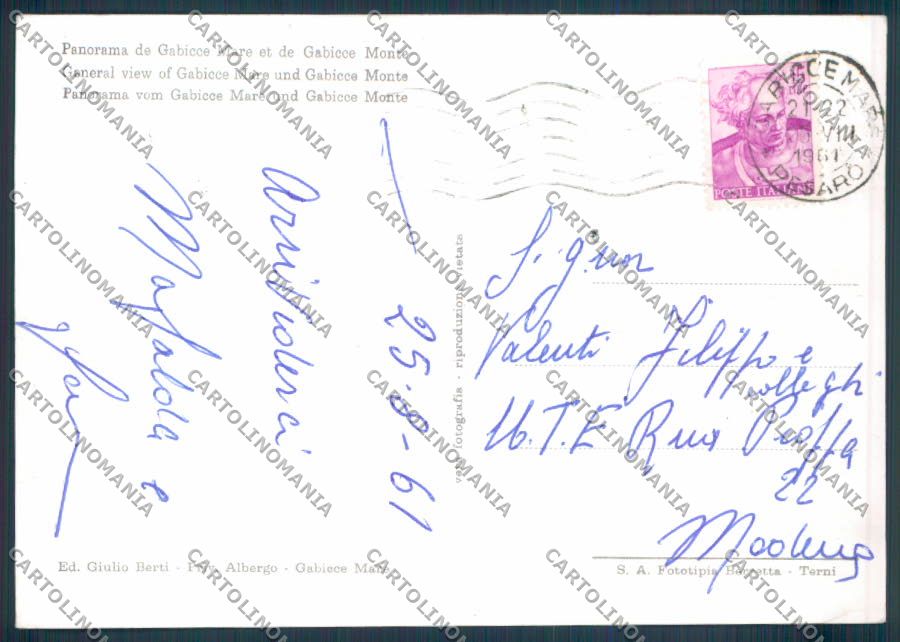 Panorama de Gabicce Mare et de Gabicce Monte
General view of Gabicce Mare und Gabicce Monte
Panorama vom Gabicce Mare und Gabicce Monte
GABICCE MARE
PESARO
1961
POSTE ITALIANE
25-8-61
Arrivederci
Mafalda e
vera fotografia - riproduzione vietata
Signor
Valenti Filippo e
colleghi
U.T.E. Rua Pioppa
22
Modena
Ed. Giulio Berti - Priv. Albergo - Gabicce Mare
S. A. Fototipia Berretta - Terni
CARTOLINOMANIA